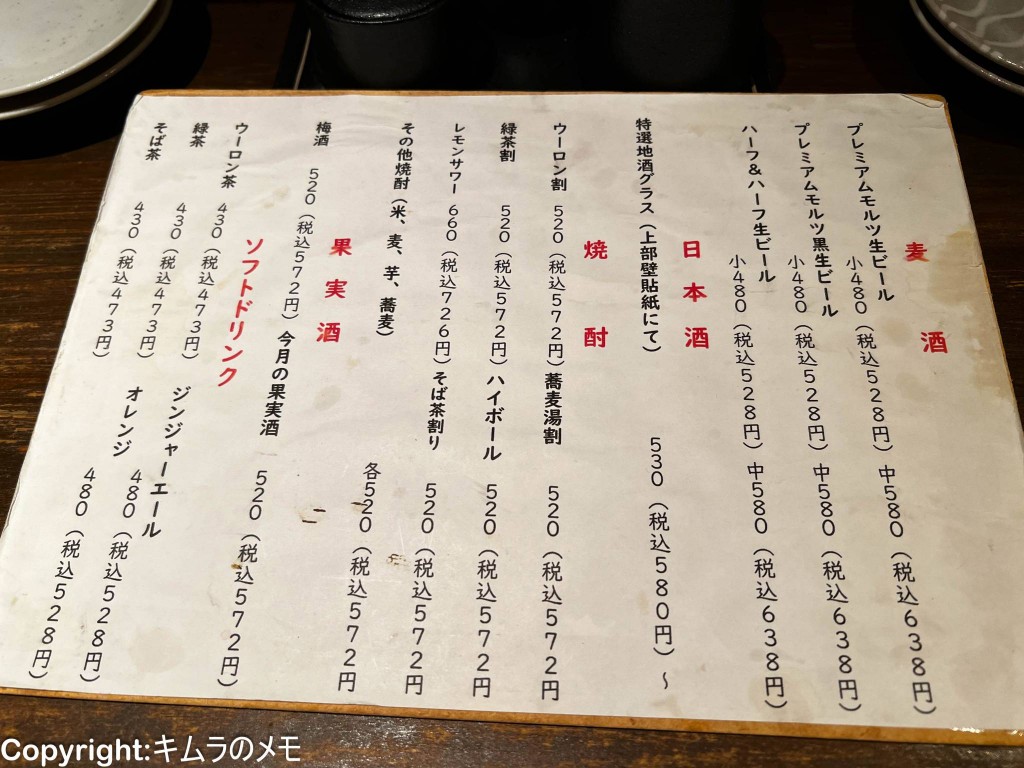 麦酒
プレミアムモルツ生ビール 小480(税込528円) 中580(税込638円)
プレミアムモルツ黒生ビール 小480(税込528円) 中580(税込638円)
ハーフ&ハーフ生ビール 小480(税込528円) 中580(税込638円)
日本酒
特選地酒グラス(上部壁貼紙にて) 530(税込580円)~
焼酎
ウーロン割 520(税込572円) 蕎麦湯割 520(税込572円
緑茶割 520(税込572円) ハイボール 520(税込572円
レモンサワー 660(税込726円) そば茶割り 520(税込572円
その他焼酎(米、麦、芋、蕎麦) 各520(税込572円
果実酒
梅酒 520(税込572円) 今月の果実酒 520(税込572円)
ソフトドリンク
ウーロン茶 430(税込473円) ジンジャーエール 480(税込528円)
緑茶 430(税込473円) オレンジ 480(税込528円)
そば茶 430(税込473円)
Copyright:キムラのメモ